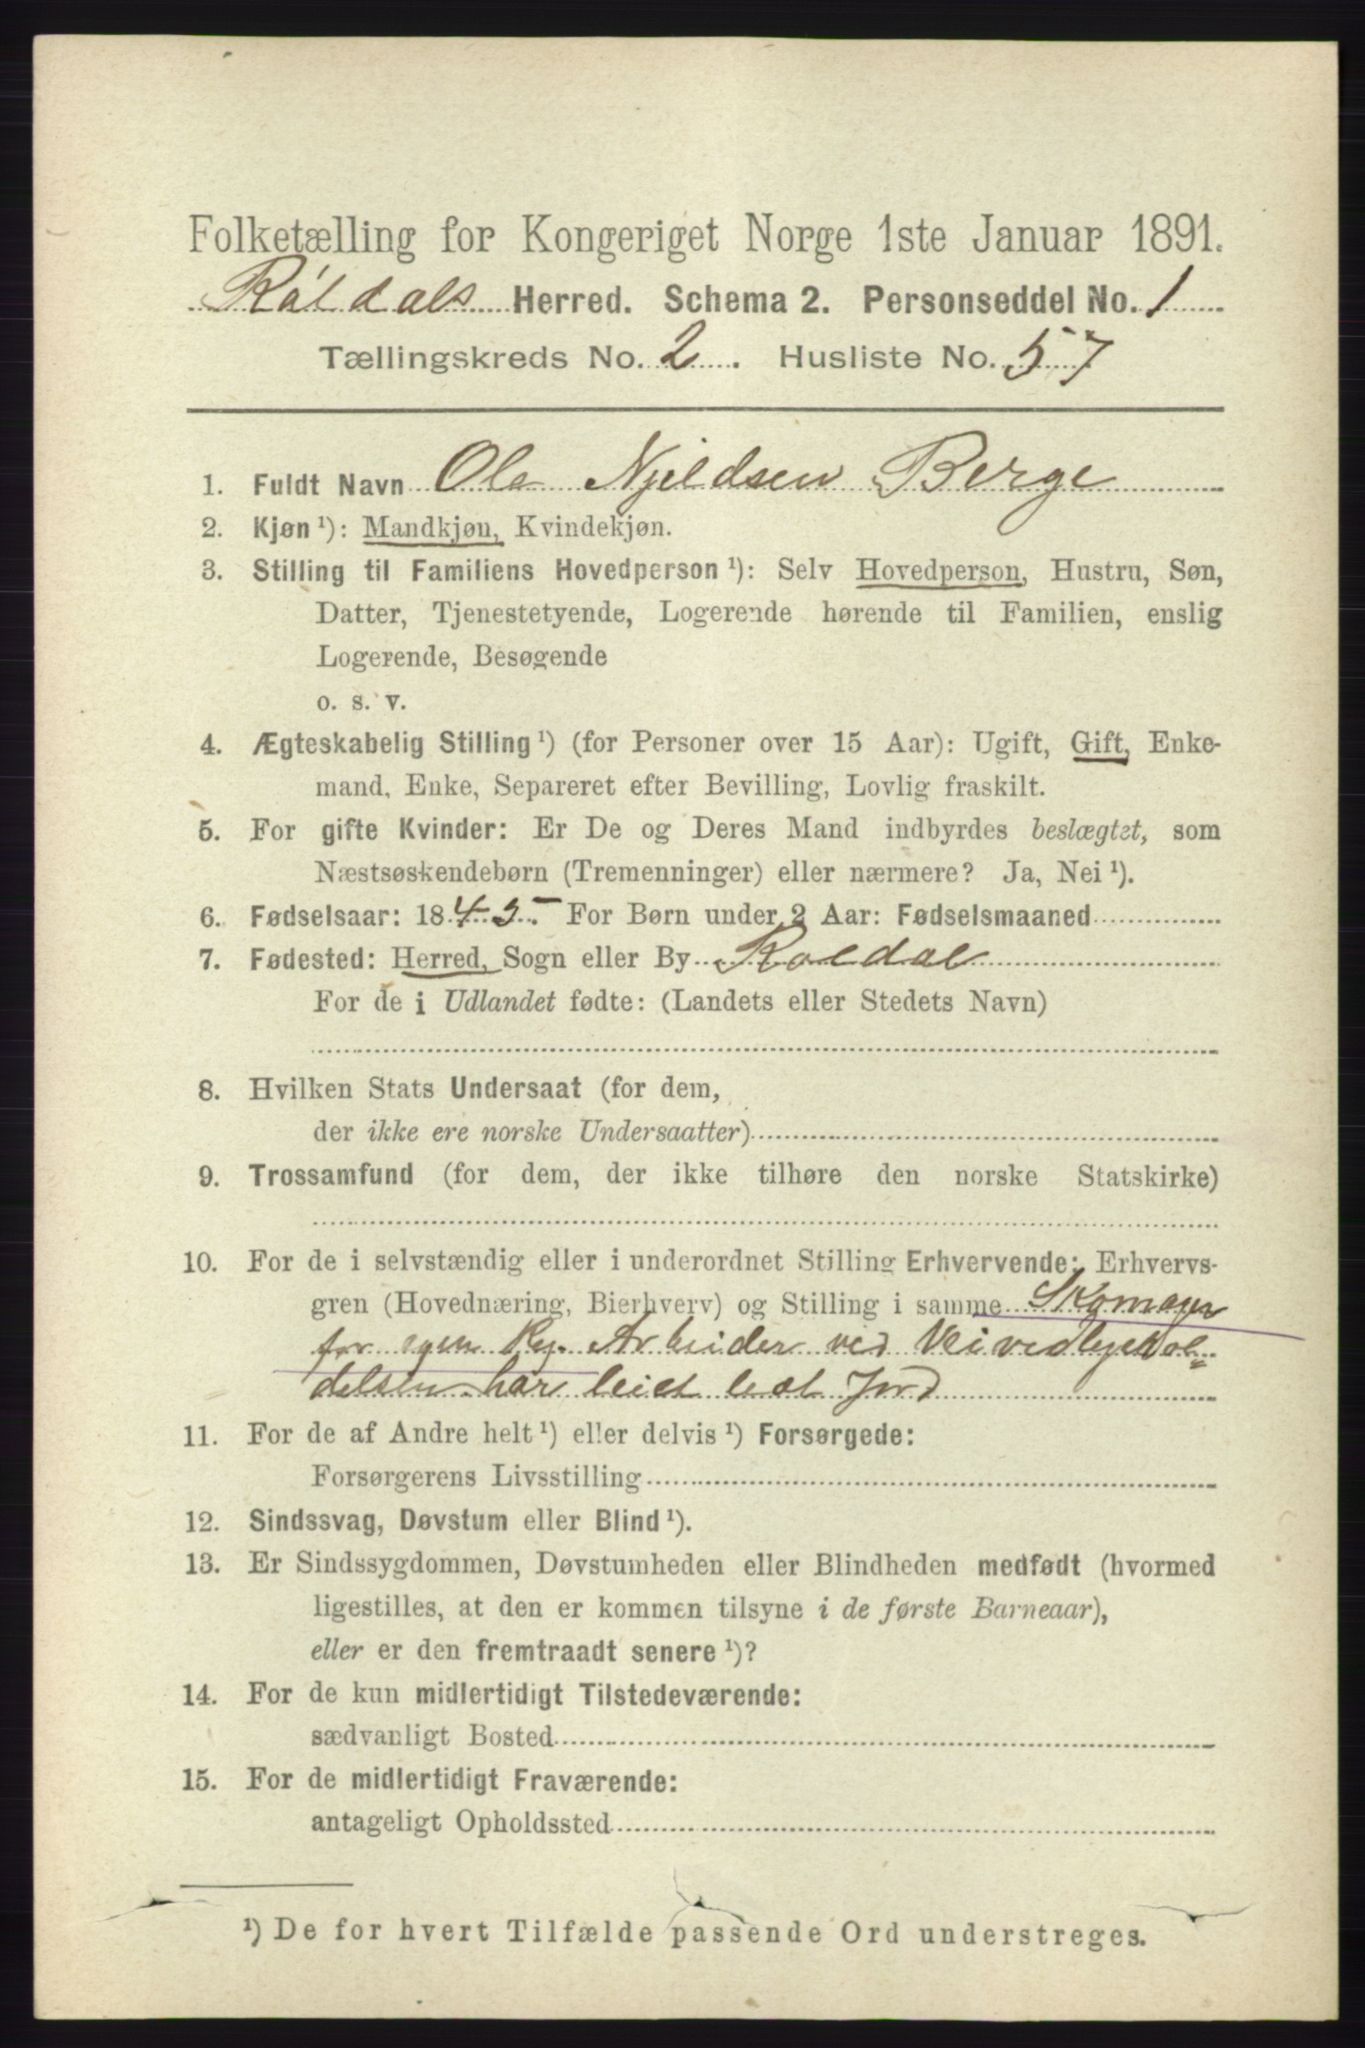 Folketælling for Kongeriget Norge 1ste Januar 1891.
Röldals Herred. Schema 2. Personseddel No. 1
Tællingskreds No. 2. Husliste No. 57
1. Fuldt Navn Ole Njeldsen Berge
2. Kjøn ¹): Mandkjøn, Kvindekjøn.
3. Stilling til Familiens Hovedperson ¹): Selv Hovedperson, Hustru, Søn,
Datter, Tjenestetyende, Logerende hørende til Familien, enslig
Logerende, Besøgende
o. s. v.
4. Ægteskabelig Stilling ¹) (for Personer over 15 Aar): Ugift, Gift, Enke-
mand, Enke, Separeret efter Bevilling, Lovlig fraskilt.
5. For gifte Kvinder: Er De og Deres Mand indbyrdes beslægtet, som
Næstsøskendebørn (Tremenninger) eller nærmere? Ja, Nei ¹).
6. Fødselsaar: 1845. For Børn under 2 Aar: Fødselsmaaned
7. Fødested: Herred, Sogn eller By Roldal
For de i Udlandet fødte: (Landets eller Stedets Navn)
8. Hvilken Stats Undersaat (for dem,
der ikke ere norske Undersaatter)
9. Trossamfund (for dem, der ikke tilhøre den norske Statskirke)
10. For de i selvstændig eller i underordnet Stilling Erhvervende: Erhvervs-
gren (Hovednæring, Bierhverv) og Stilling i samme Skomager
for egen Reg. Arbeider ved Veivedligehol=
delsen har leiet lidt Jord
11. For de af Andre helt ¹) eller delvis ¹) Forsørgede:
Forsørgerens Livsstilling
12. Sindssvag, Døvstum eller Blind ¹).
13. Er Sindssygdommen, Døvstumheden eller Blindheden medfødt (hvormed
ligestilles, at den er kommen tilsyne i de første Barneaar),
eller er den fremtraadt senere ¹)?
14. For de kun midlertidigt Tilstedeværende:
sædvanligt Bosted
15. For de midlertidigt Fraværende:
antageligt Opholdssted
¹) De for hvert Tilfælde passende Ord understreges.